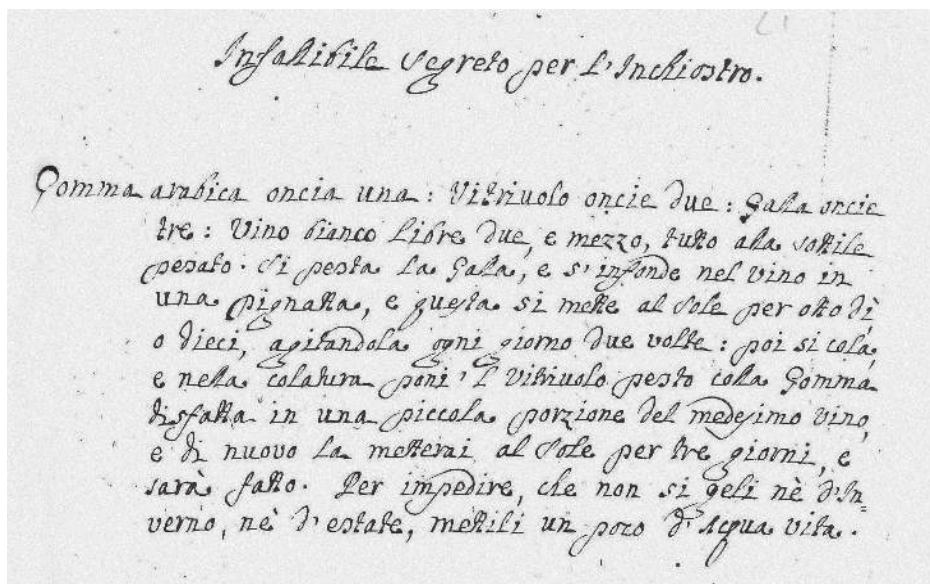 21
Infallibile Segreto per l'Inchiostro.
Gomma arabica oncia una: Vitriuolo oncie due: Galla oncie
tre: Vino bianco Libre due, e mezzo, tutto alla sottile
pesato. Si pesta la Galla, e s'infonde nel vino in
una pignatta, e questa si mette al Sole per otto dì
o dieci, agitandola ogni giorno due volte: poi si cola,
e nella colatura poni 'l Vitriuolo pesto colla Gomma
disfatta in una piccola porzione del medesimo vino,
e di nuovo la metterai al Sole per tre giorni, e
sarà fatto. Per impedire, che non si geli nè d'In=
verno, nè d'estate, mettili un poco d'Acqua vita.